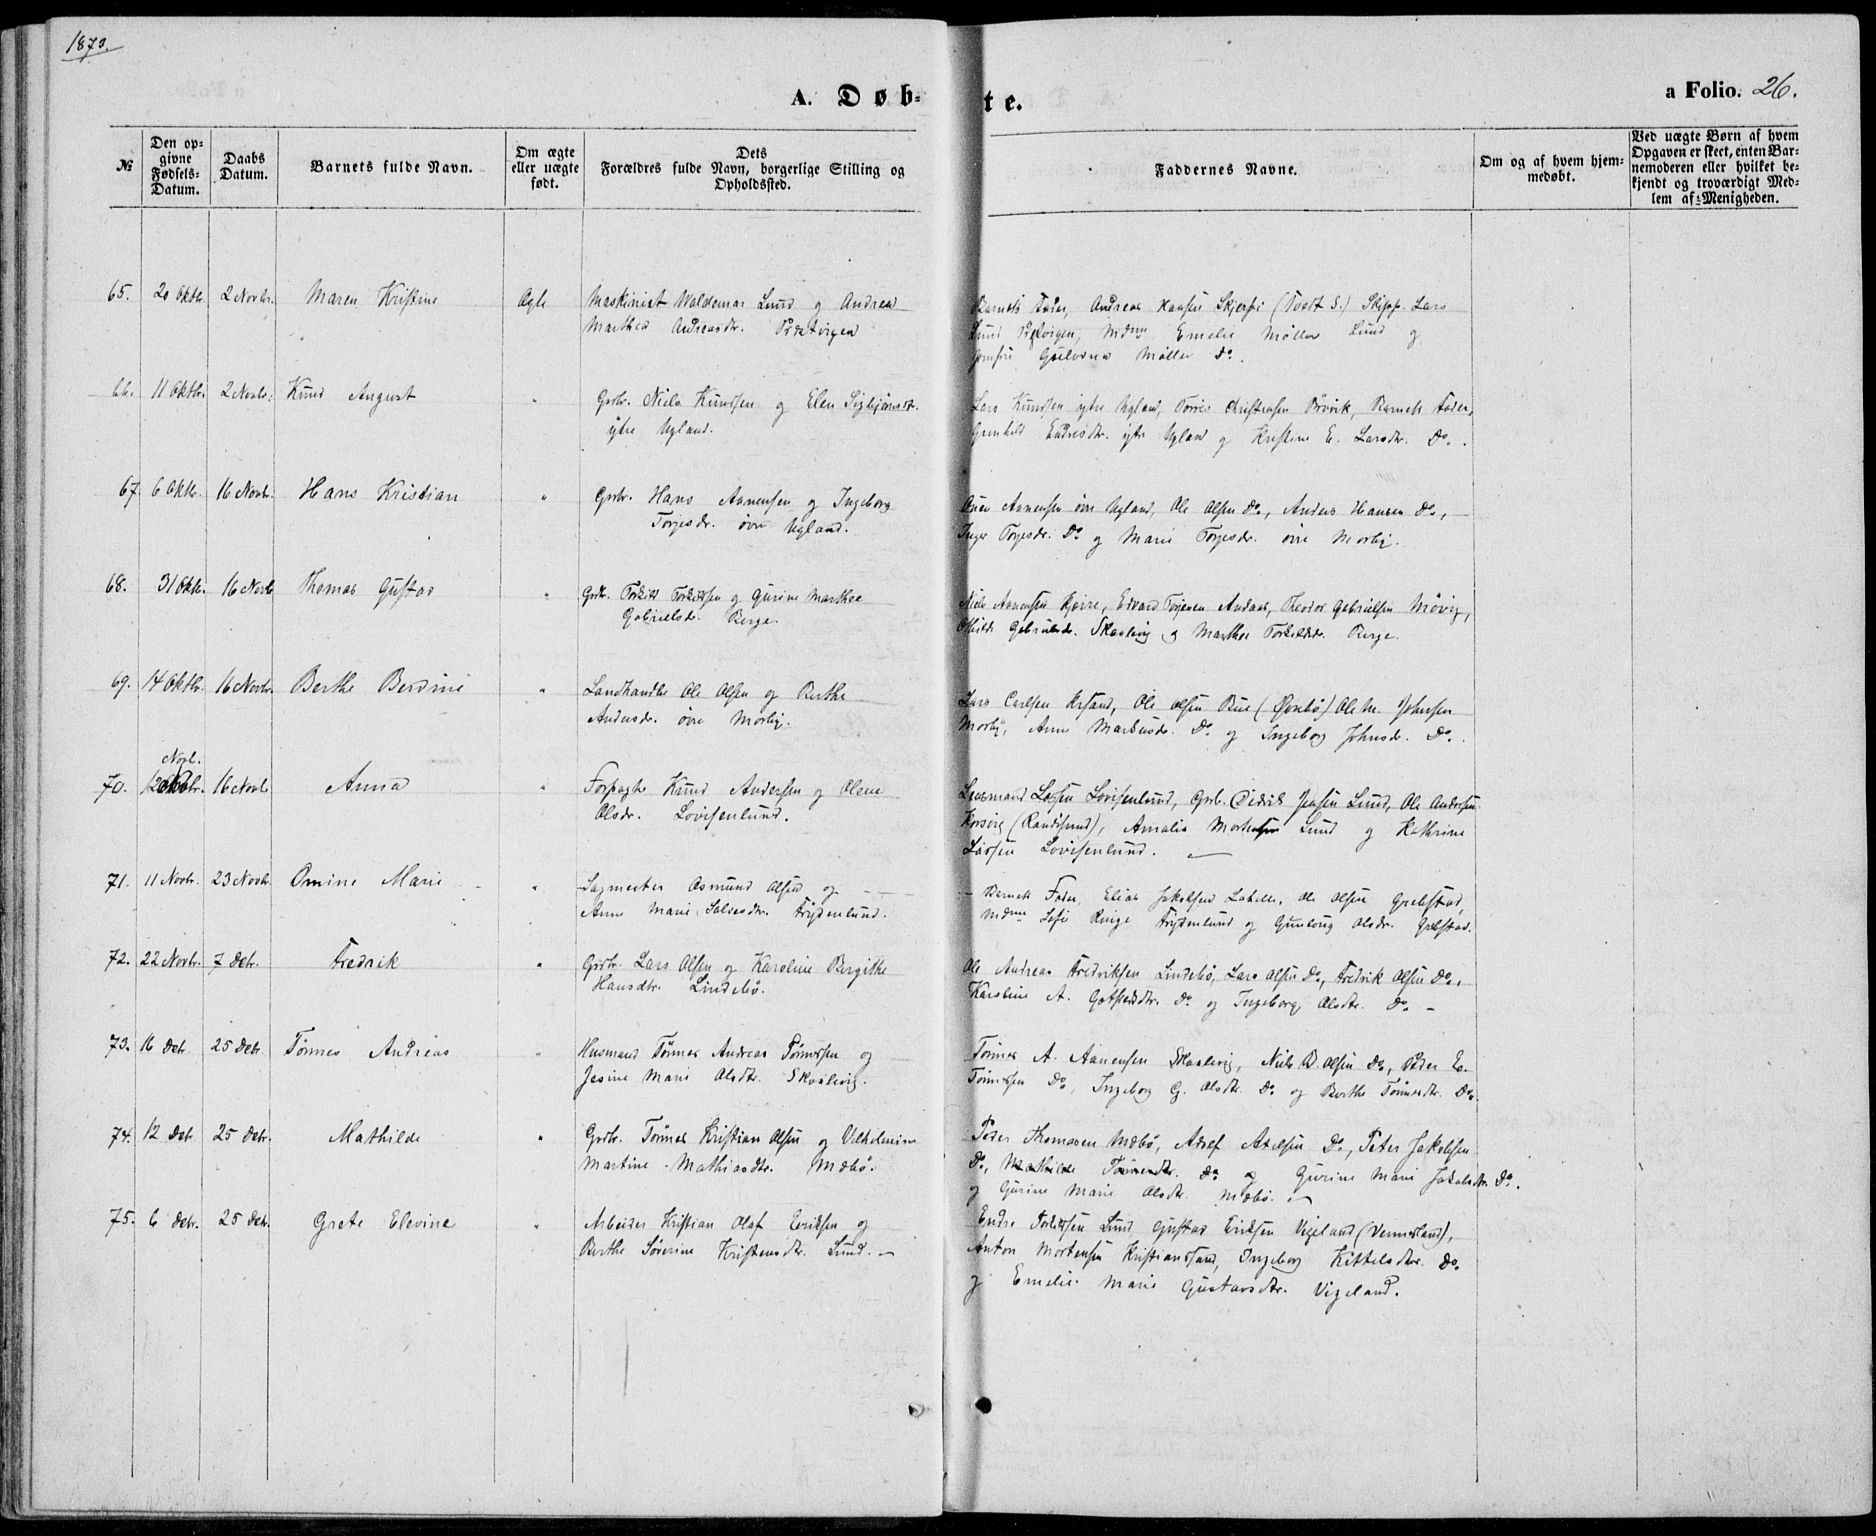 1873.
A. Døbte.
a Folio. 26.
№
Den opgivne Fødsels-Datum.
Daabs Datum.
Barnets fulde Navn.
Om ægte eller uægte født.
Dets Forældres fulde Navn, borgerlige Stilling og Opholdssted.
Faddernes Navne.
Om og af hvem hjemmedøbt.
Ved uægte Børn af hvem Opgaven er skeet, enten Barnemoderen eller hvilket bekjendt og troværdigt Medlem af Menigheden.
65. 20 Oktbr. 2 Novbr. Maren Kristine Ægte Maskinist Waldemar Lund og Andrea
Marthea Andreasdr.
Barnets Fader, Andreas Hansen (Tvedt S.) Skipp. Lars
Lund Mdme Emelie Møller Lund og
Jomfru Møller Do.
66. 11 Oktbr. 2 Novbr. Knud August " Grdbr. Niels Knudsen og Elen
ytre Ugland.
Lars Knudsen ytre Ugland, Barnets Fader,
Gunhild Endresdtr. ytr Ugland og Kristine E. Larsdtr. Do.
67. 6 Oktbr. 16 Novbr. Hans Kristian " Grdbr. Hans Aanensen og Ingeborg
Torjesdr. øvre Ugland.
Aanensen øvre Ugland, Ole Olsen Do, Anders Hansen Do,
Inger Torjesdr. Do og Marie Torjesdr. øvre Mosby.
68. 31 Oktb. 16 Novb Thomas Gustav " Grdbr. Torkild Torkildsen og Gurine Marthea
Gabrielsdr. Berge.
Niels Aanensen Edvard Torjesen Andaas, Theodor Gabrielsen Møvig,
Gabrielsdr. Skaalevig og Marthe Torkildsdr. Berge.
69. 14 Oktbr. 16 Novbr. Berthe Berdine " Landhandler Ole Olsen og Berthe
Andersdr. øvre Mosby.
Lars Carlsen Krsand, Ole Olsen Rue (Øvrebø) Ole M. Johnsen
Mosby, Anne Markusdr. Do og Ingeborg Johnsdr. Do.
Novb.
70. 12 16 Novbr Anna " Forpagter Knud Andersen og Olene
Olsdr. Lovisenlund.
Lensmand Larsen Lovisenlund, Grdb. Didrik Jensen Lund, Ole Andersen
(Randøsund), Amalia Lund og Kathrine
Larsen Lovisenlund.
71. 11 Novbr. 23 Novbr Omine Marie " Sagmester Osmund Olsen og
Anne Marie Salvesdtr. Frydenlund.
Barnets Fader, Elias Jakobsen Ole Olsen Grebstad,
Mdme Sofie Ringe Frydenlund og Gunlaug Olsdr. Grebstad.
72. 22 Novbr. 7 Debr. Fredrik " Grdbr. Lars Olsen og Karoline Bergithe
Hansdtr. Lindebø.
Ole Andreas Fredriksen Lindebø, Lars Olsen Do, Fredrik Olsen Do,
Karoline A. Do og Ingeborg Olsdtr. Do
73. 16 Debr 25 Debr Tønnes Andreas " Husmand Tønnes Andreas Tønnessen og
Jesine Marie Olsdtr. Skaalevig.
Tønnes A. Aanensen Skaalevig, Niels B. Olsen Do, Peder E.
Tønnessen Do, Ingeborg G. Olsdtr. Do og Berthe Tønnesdtr. Do.
74. 12 Debr 25 Debr. Mathilde " Grdbr. Tønnes Kristian Olsen og Vilhelmine
Martine Mathiasdtr. Mæbø.
Peder Thomasen Mæbø, Adolf Axelsen Do, Peter Jakobsen
Do, Mathilde Tønnesdtr. Do og Gurine Marie Jakobsdtr. Do.
og Gurine Marie Olsdtr. Mæbø.
75. 6 Debr. 25 Debr. Grete Elevine " Arbeider Kristian Olaf Eriksen og
Berthe Sørerine Kristensdtr. Lund.
Endre Lund Gustav Eriksen Vigeland (Vennesland),
Anton Mortensen Kristianssand, Ingeborg Kittelsdtr. Do.
og Emelie Marie Gustavsdtr. Vigeland.